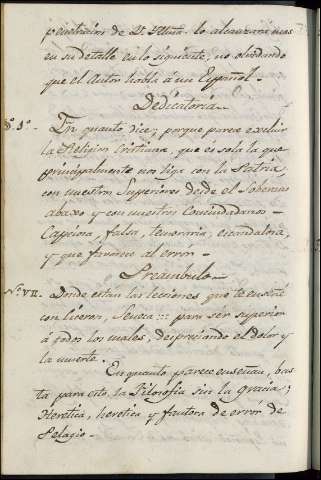 penetracion de V. Illma. lo alcanzará mas
en su detalle en lo siguiente, no olvidando
que el Autor habla á un Español.
Dedicatoria
§º 1º. En quanto dice, porque parece excluir
la Religion Cristiana, que es sola la que
principalmente nos liga con la Patria,
con nuestros Superiores desde el Soberano
abaxo y con nuestros Conciudadanos –
Capciosa, falsa, temeraria, escandalosa,
y que favorece al error –
Preambulo –
Nº VII. Donde están las lecciones que te enseñé
con Ciceron, Seneca ::: para ser superior
á todos los males, despreciando el dolor y
la muerte.
En quanto parece enseñar, bas
ta para esto la Filosofia sin la gracia;
Heretica, heretica y fautora de error de
Pelagio –